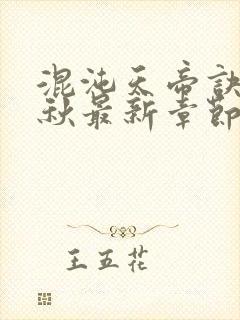 混沌天帝诀
秋最新章節
王五花